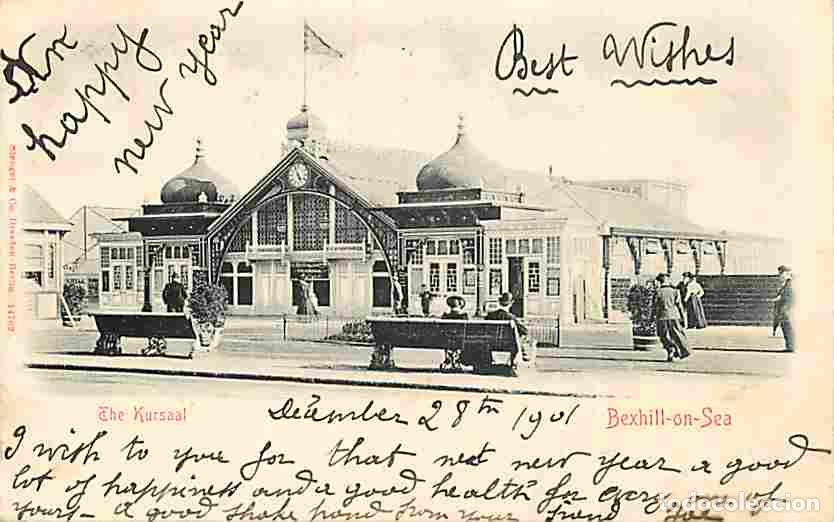 An
happy
new year
Best Wishes
Stengel & Co. Dresden-Berlin 14762
The Kursaal
December 28th 1901
Bexhill-on-Sea
I wish to you for that next new year a good
lot of happiness and a good health for every one of
yours - A good shake hand from your friend
todocoleccion